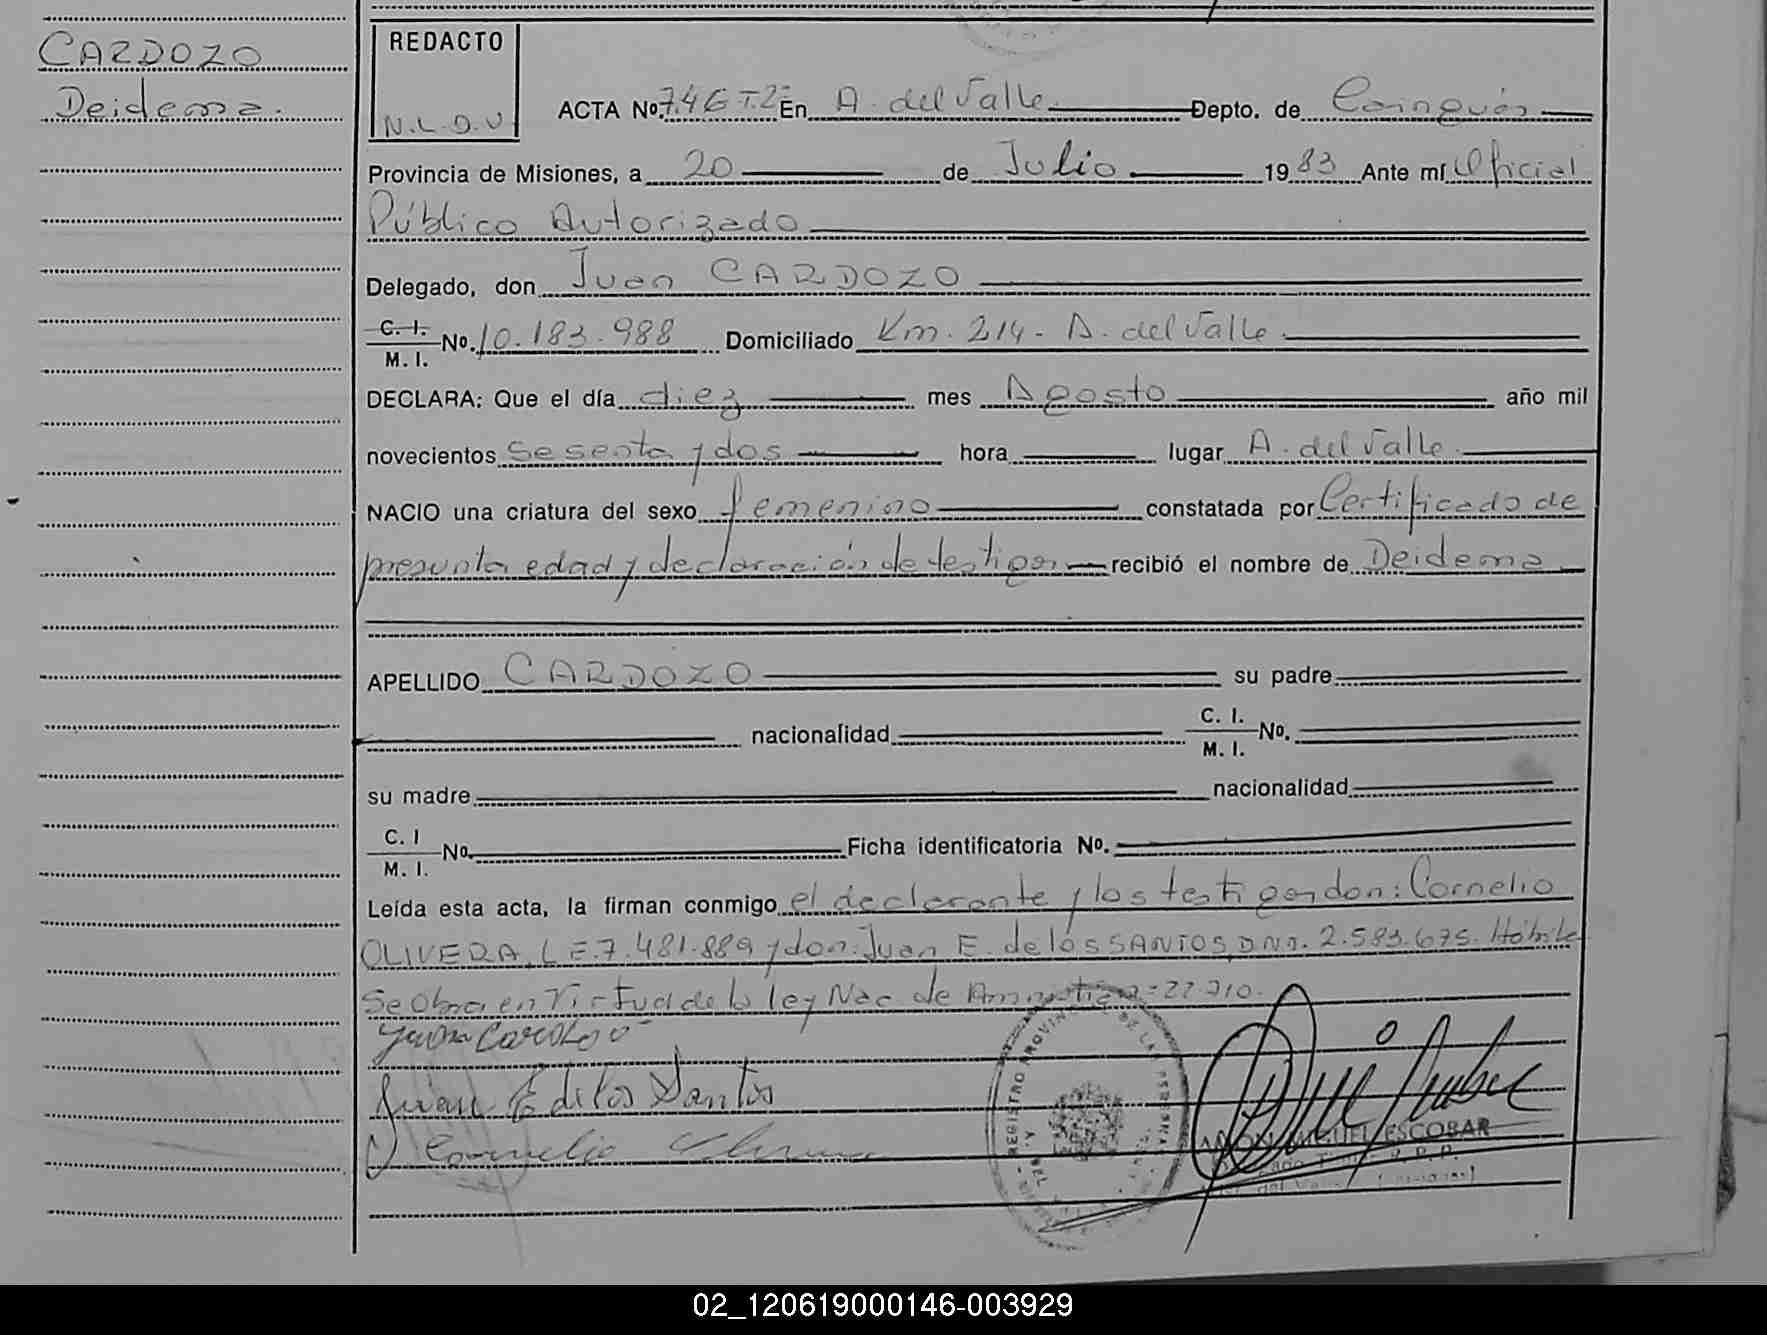 CARDOZO
Deidema.
REDACTO
N.L.D.V.
ACTA Nº. 746 T.2º En A. del Valle Depto. de Cainguás
Provincia de Misiones, a 20 de Julio 1983 Ante mí Oficial
Público Autorizado
Delegado, don Juan CARDOZO
C. I. M. I. Nº. 10.183.988 Domiciliado Km. 214 - A. del Valle.
DECLARA: Que el día diez mes Agosto año mil
novecientos sesenta y dos hora lugar A. del Valle.
NACIO una criatura del sexo femenino constatada por Certificado de
presunta edad y declaración de testigos recibió el nombre de Deidema
APELLIDO CARDOZO su padre
nacionalidad C. I. M. I. Nº.
su madre nacionalidad
C. I M. I. Nº. Ficha identificatoria Nº.
Leída esta acta, la firman conmigo el declarante y los testigos don: Cornelio
OLIVERA, L.E. 7.481.889 y don: Juan E. de los SANTOS, D.N.I. 2.583.675. Hábiles
Se Obra en Virtud de la ley Nac de Amnistia = 22.710.
Juan Cardozo
Juan E de los Santos
Cornelio
REGISTRO PROVINCIAL DE LAS PERSONAS
MIGUEL ESCOBAR
02_120619000146-003929